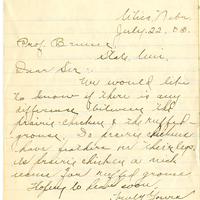 Bliss, Nebr.
July. 22. 08.
Prof. Bruner
State Uni.
Dear Ser:-
We would like
to know if there is any
difference between the
prairie-chicken & the ruffed
grouse. Do prairie chickens
have feathers on their legs.
Is prairie chicken a nick
name for ruffed grouse
Hoping to hear soon
Truly Yours